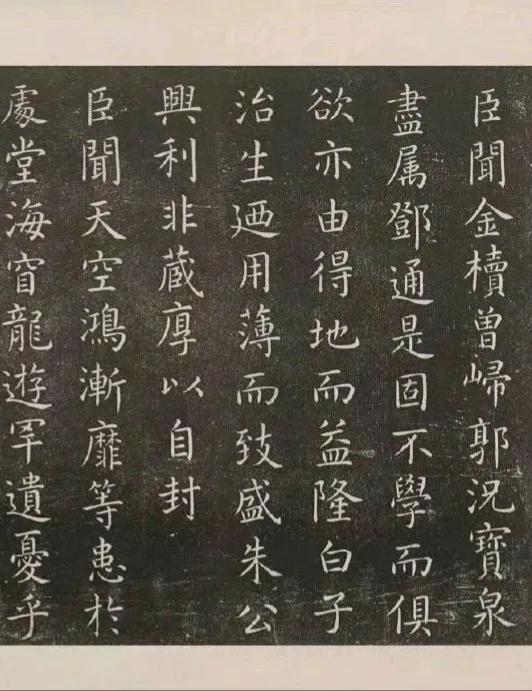 臣聞金櫝曾歸郭況寶泉
盡属鄧通是固不學而俱
欲亦由得地而益隆白子
治生廼用薄而致盛朱公
興利非蔵厚以自封
臣聞天空鴻漸靡等患於
處堂海窅龍遊罕遺憂乎